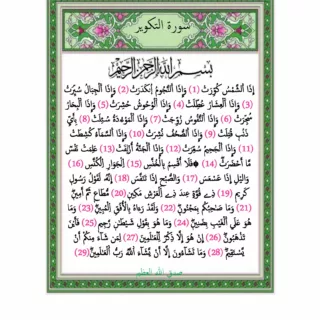 سورة التكوير
بِسْمِ اللَّهِ الرَّحْمَنِ الرَّحِيمِ
إِذَا الشَّمْسُ كُوِّرَتْ (1) وَإِذَا النُّجُومُ انْكَدَرَتْ (2) وَإِذَا الْجِبَالُ سُيِّرَتْ
(3) وَإِذَا الْعِشَارُ عُطِّلَتْ (4) وَإِذَا الْوُحُوشُ حُشِرَتْ (5) وَإِذَا الْبِحَارُ
سُجِّرَتْ (6) وَإِذَا النُّفُوسُ زُوِّجَتْ (7) وَإِذَا الْمَوْءُدَةُ سُئِلَتْ (8) بِأَيِّ
ذَنْبٍ قُتِلَتْ (9) وَإِذَا الصُّحُفُ نُشِرَتْ (10) وَإِذَا السَّمَاءُ كُشِطَتْ
(11) وَإِذَا الْجَحِيمُ سُعِّرَتْ (12) وَإِذَا الْجَنَّةُ أُزْلِفَتْ (13) عَلِمَتْ نَفْسٌ
مَّا أَحْضَرَتْ (14) فَلَا أُقْسِمُ بِالْخُنَّسِ (15) الْجَوَارِ الْكُنَّسِ (16)
وَاللَّيْلِ إِذَا عَسْعَسَ (17) وَالصُّبْحِ إِذَا تَنَفَّسَ (18) إِنَّهُ لَقَوْلُ رَسُولٍ
كَرِيمٍ (19) ذِي قُوَّةٍ عِنْدَ ذِي الْعَرْشِ مَكِينٍ (20) مُطَاعٍ ثَمَّ أَمِينٍ
(21) وَمَا صَاحِبُكُمْ بِمَجْنُونٍ (22) وَلَقَدْ رَءَاهُ بِالْأُفُقِ الْمُبِينِ (23) وَمَا
هُوَ عَلَى الْغَيْبِ بِضَنِينٍ (24) وَمَا هُوَ بِقَوْلِ شَيْطَانٍ رَجِيمٍ (25) فَأَيْنَ
تَذْهَبُونَ (26) إِنْ هُوَ إِلَّا ذِكْرٌ لِلْعَالَمِينَ (27) لِمَنْ شَاءَ مِنْكُمْ أَنْ
يَسْتَقِيمَ (28) وَمَا تَشَاءُونَ إِلَّا أَنْ يَشَاءَ اللَّهُ رَبُّ الْعَالَمِينَ (29)
صدق الله العظيم